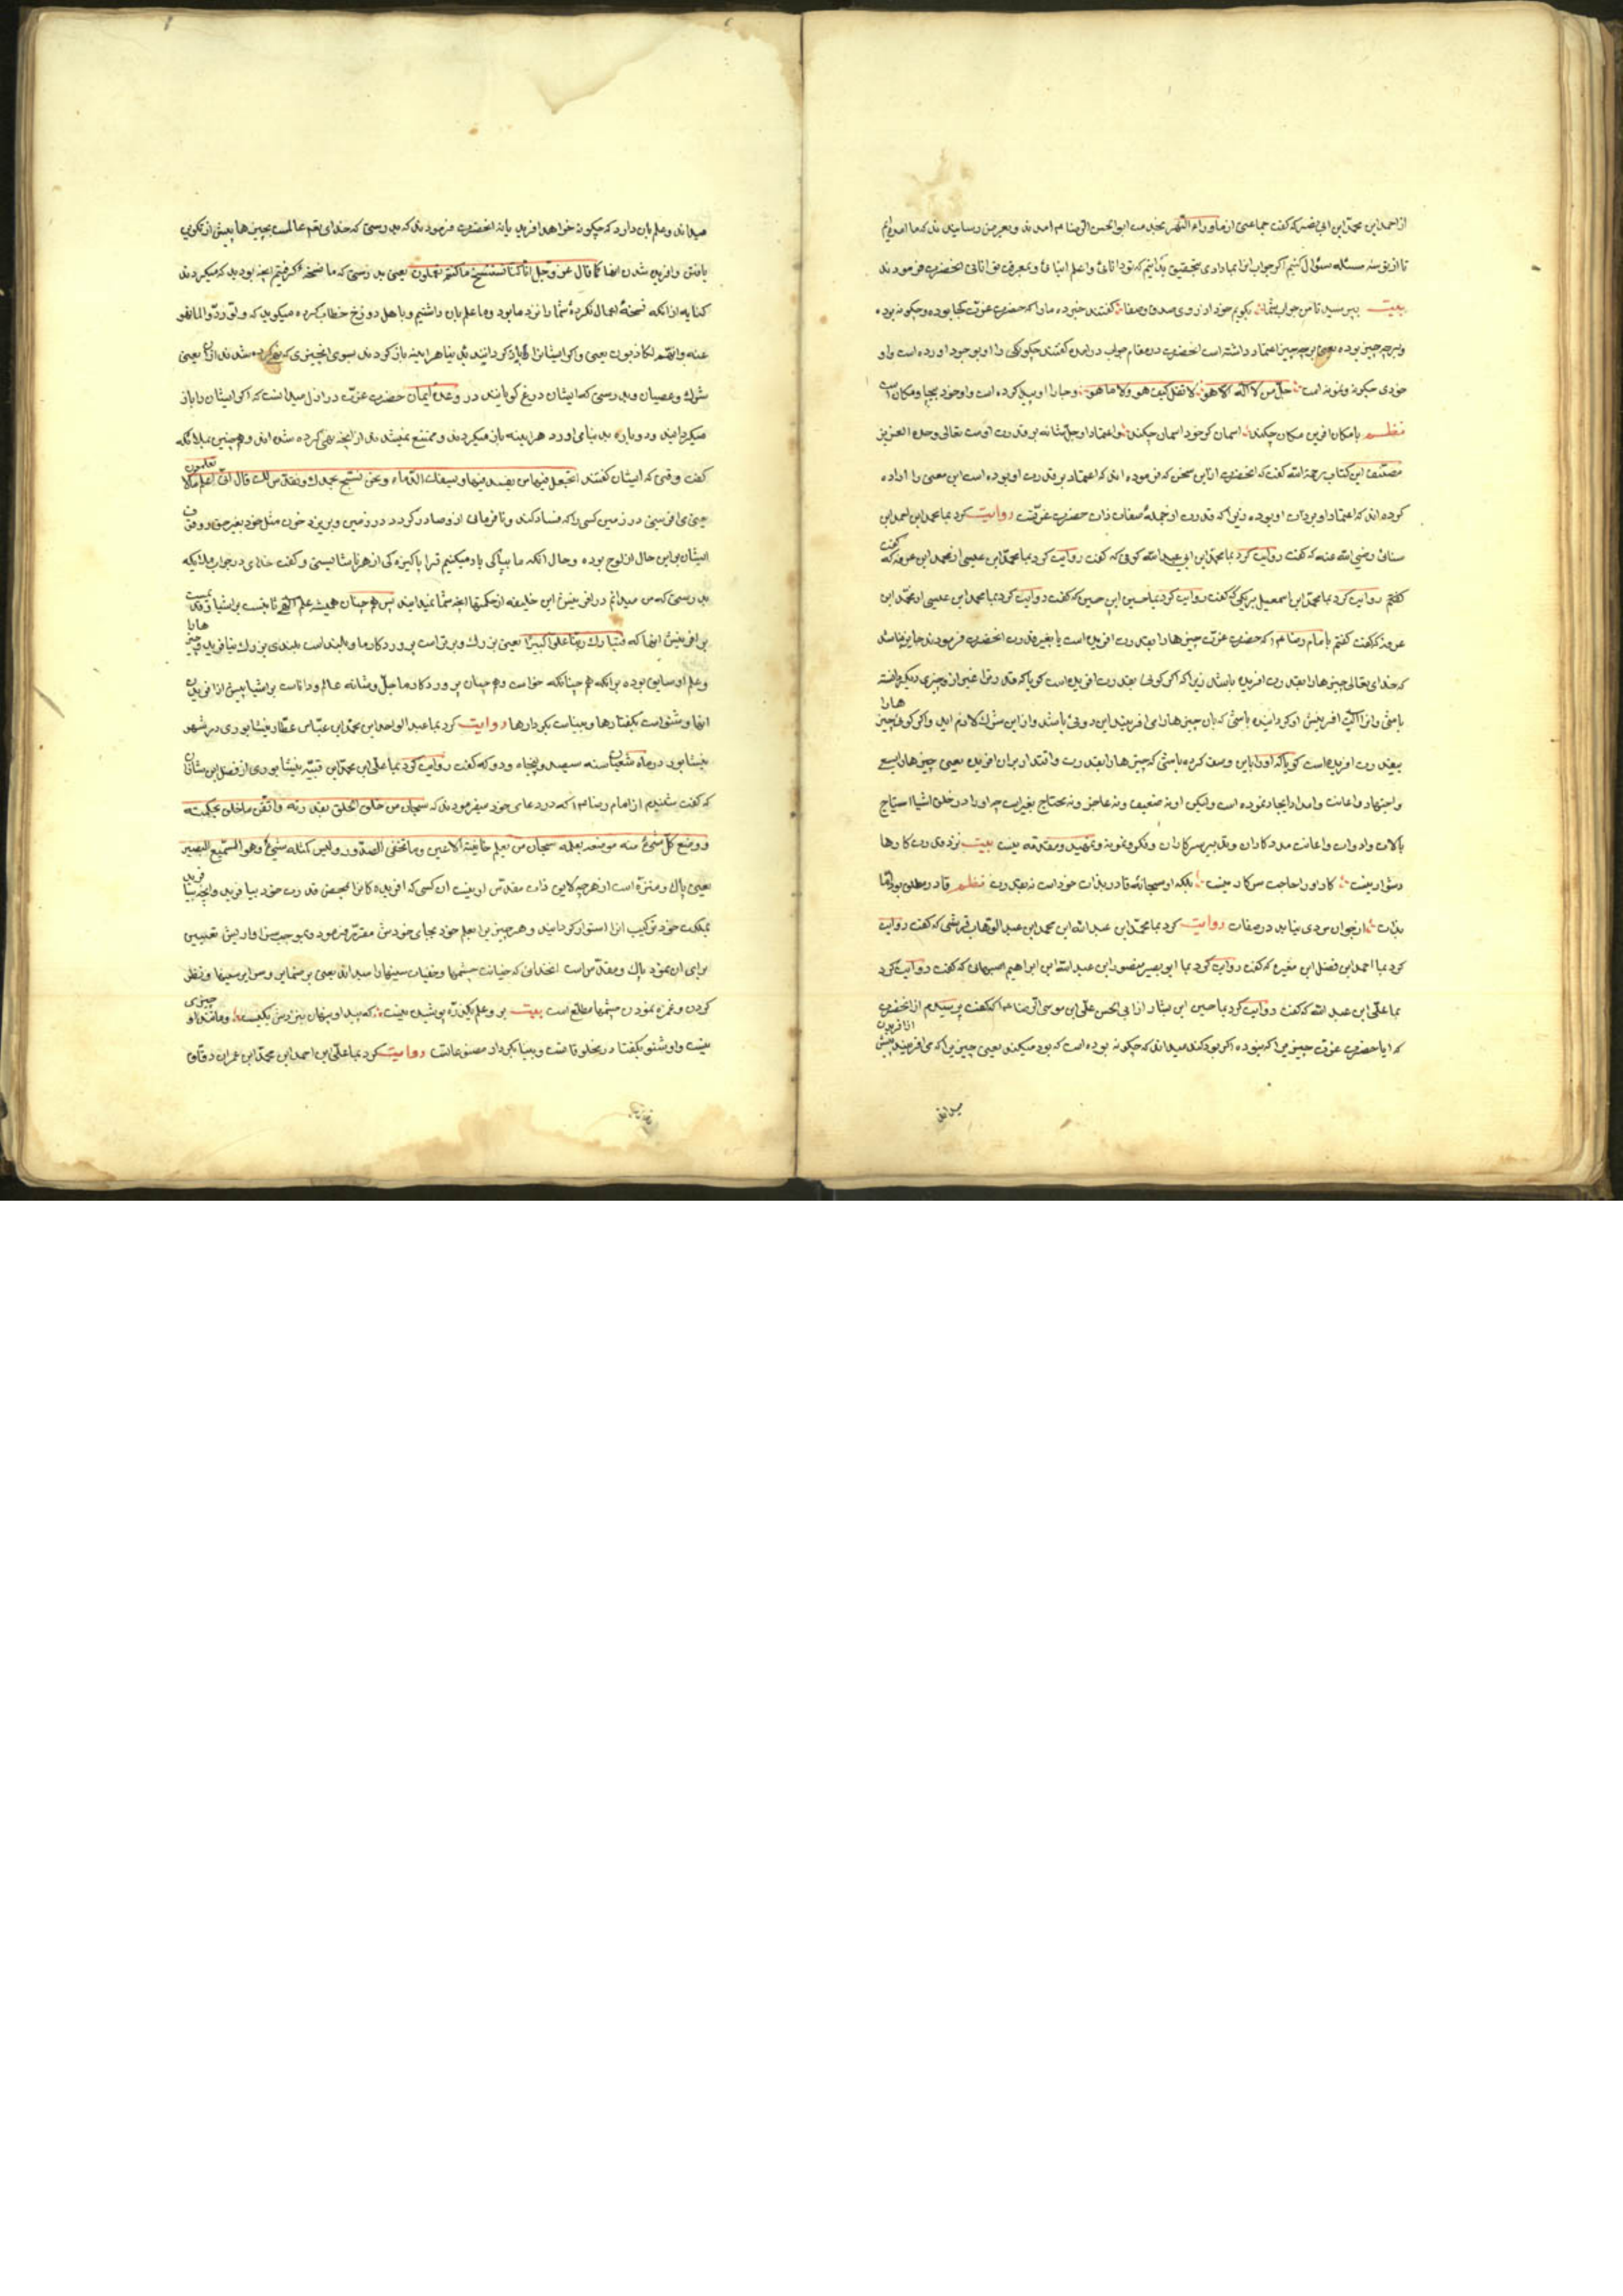 از احمد ابن محمد ابن ابی نصر که گفت جماعتی از ماوراء النهر بخدمت ابو الحسن الرضا ع م آمدند و بعرض رسانیدند که ما آمده‌ایم
تا از تو سه مسئله سؤال کنیم اگر جواب آنرا بما دادی بتحقیق بدانیم که تو دانائی و اعلم انبائی و بمعرفت توانائی آنحضرت فرمودند
بیت بپرسید تا من جواب شما بگویم خود از روی صدق و صفا گفتند خبر ده ما را که حضرت عزت کجا بوده و چگونه بوده
و بر چه چیز بوده یعنی بر چه چیز اعتماد داشته است آنحضرت در مقام جواب درآمدن گفتند چگونگی را او بوجود آورده است و او
خودی چگونه و نمونه است جل من لا اله الا هو لا تقل کیف هو ولا ما هو و جا را او پیدا کرده است و او خود بیجا و مکان است
نظم با مکان آفرین مکان چکند آسمان گر خود آسمان چکند و اعتماد او جل شانه بر قدرت اوست تعالی وحده العزیز
مصنف این کتاب رحمة الله گفت که آنحضرت از این سخن که فرموده‌اند که اعتماد بر قدرت او بوده است این معنی را اراده
کرده‌اند که اعتماد او بر ذات او بوده زیرا که قدرت از جملهٔ صفات ذات حضرت عزتست روایت کرد بما محمد ابن احمد ابن
سنائی رضی الله عنه که گفت روایت کرد بما محمد ابن ابی عبد الله کوفی که گفت روایت کرد بما محمد ابن عیسی از محمد ابن عرفه که گفت
گفتم روایت کرد بما محمد ابن اسمعیل برمکی که گفت روایت کرد بما حسین ابن حسن که گفت روایت کرد بما محمد ابن عیسی از محمد ابن
عرفه که گفت گفتم با امام رضا ع م که حضرت عزت چیزها را بقدرت آفریده است یا بغیر قدرت آنحضرت فرمودند جایز نباشد
که خدای تعالی چیزها را بقدرت آفریده باشد زیرا که اگر گوئی بقدرت آفریده است گویا که قدرت را غیر از او چیزی دیگر دانسته
باشی و آنرا آلت آفرینش او گردانیده باشی که بآن چیزها را می‌آفریند این دوئی باشد و از این شرک لازم آید و اگر گوئی چیزها را
بقدرت آفریده است گویا که او را باین وصف کرده باشی که چیزها را بقدرت و اقتدار بر آن آفریده یعنی چیزها را بسعی
و اجتهاد و اعانت و امداد ایجاد نموده است ولیکن او نه ضعیف و نه عاجز و نه محتاج بغیر است چه او را در خلق اشیا احتیاج
بآلات و ادوات و اعانت مددکاران و تدبیر سرکاران و فکر و نمونه و تمهید و مقدمه نیست بیت نزد قدرت کارها
دشوار نیست کار او را حاجت سرکار نیست بلکه او سبحانه قادر بذات خود است نه بقدرت نظم قادر مطلق بود اما
بذات از خوان مزدی نیاید در صفات روایت کرد بما محمد ابن عبد الله ابن محمد ابن عبد الوهاب قریشی که گفت روایت
کرد بما احمد ابن فضل ابن مغیره که گفت روایت کرد بما ابو بصیر منصور ابن عبد الله ابن ابراهیم اصبهانی که گفت روایت کرد
بما علی ابن عبد الله که گفت روایت کرد بما حسین ابن بشار از ابی الحسن علی ابن موسی الرضا ع م که گفت پرسیدم از آنحضرت
که ایا حضرت عزت چیزی را که نبوده اگر بود کند میداند که چگونه بوده است که بود میکند یعنی چیزی را که می‌آفریند پیش از آفریدن
میداند
میداند و علم بآن دارد که چگونه خواهد آفرید یا نه آنحضرت فرمودند که بدرستی که خدای تعم عالمست بچیزها پیش از تکوین
یافتن و آفریده شدن آنها کما قال عز و جل انا کنا نستنسخ ما کنتم تعملون یعنی بدرستی که ما نسخه گرفتیم آنچه بودید که میکردید
کنایه از آنکه نسخهٔ اعمال نکردهٔ شما را نزد ما بود و ما علم بآن داشتیم و با هل دوزخ خطاب کرده میگوید که ولو ردوا لما نهو
عنه وانهم لکاذبون یعنی و اگر ایشانرا باز گردانیده بدنیا هر آینه باز گردند بسوی آنچیزی که نهی کرده شدند از آن یعنی
شرک و عصیان و بدرستی که ایشان دروغ گویانند در وعدهٔ ایمان حضرت عزت در ازل میدانست که اگر ایشان را باز
میگردانید و دوباره بدنیا می‌آورد هر آینه باز میگردند و ممتنع نمیشدند از آنچه نهی کرده شده‌اند و همچنین بملائکه
گفت وقتی که ایشان گفتند اتجعل فیها من یفسد فیها ویسفک الدماء ونحن نسبح بحمدک ونقدس لک قال انی اعلم ما لا تعلمون
یعنی می‌آفرینی در زمین کسی را که فساد کند و نافرمانی از وصادر کردد در زمین و بریزد خون مثل خود بغیر حق و وقوف
ایشان بر این حال از لوح بوده و حال آنکه ما بپاکی یاد میکنیم ترا پاکیزه کی از هر ناشایستی و گفت خدای در جواب ملائکه
بدرستی که من میدانم در آفرینش این خلیفه از حکمتها آنچه شما نمیدانید پس همچنان همیشه علم الهی ثابتست بر اشیا قدیمست
بر آفرینش آنها که فتبارک ربنا علوا کبیرا یعنی بزرک و برتر است پروردکار ما و بلند است بلندی بزرک بیافرید چیزها را
و علم او سابق بوده برآنکه هم چنانکه خواست و هم چنان پروردکار ما جل و شانه عالم و داناست بر اشیا پیش از آفریدن
آنها و شنواست بگفتارها و بیناست بکردارها روایت کرد بما عبد الواحد ابن محمد ابن عباس عطار نیشابوری در شهر
نیشابور در ماه شعبان سنه سیصد و پنجاه و دو که گفت روایت کرد بما علی ابن محمد ابن قتیبه نیشابوری از فضل ابن شاذان
که گفت شنیدم از امام رضا ع م که در دعای خود میفرمودند که سبحان من خلق الخلق بقدرته واتقن ما خلق بحکمته
ووضع کل شیء منه موضعه بعلمه سبحان من یعلم خائنة الاعین وما تخفی الصدور ولیس کمثله شیء وهو السمیع البصیر
یعنی پاک و منزه است از هر چه لایق ذات مقدس او نیست آن کسی که آفریده کانرا بمحض قدرت خود بیافرید و آنچه بیافرید
بحکمت خود ترکیب آنرا استوار کردانید و هر چیزی را بعلم خود بجای خودش مقرر فرمود و بموجب سزاواریش تعیین
برای آن نمود پاک و مقدس است آنخدائی که خیانت چشمها و خفیات سینها را میداند یعنی بر ضمایر و سرایر سینها و نظر
کردن و غمزه نمودن چشمها مطلع است بیت بر و علم یک ذره پوشیده نیست که پیدا و پنهان بنزدش یکیست و مانند او چیزی
نیست و او شنو بگفتار مخلوقاتست و بینا بکردار مصنوعاتست روایت کرد بما علی ابن احمد ابن محمد ابن عمران دقاق